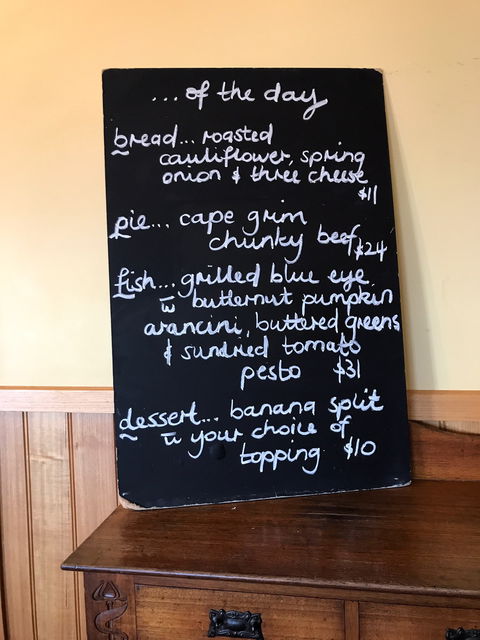 ... of the day
bread... roasted
cauliflower, spring
onion & three cheese
$11
pie... cape grim
chunky beef $24
fish... grilled blue eye
w butternut pumpkin
arancini, buttered greens
& sundried tomato
pesto $31
dessert... banana split
w your choice of
topping $10